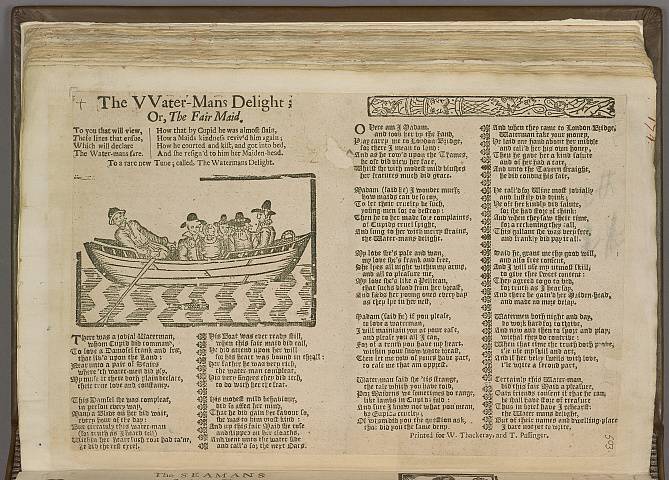 The VVater-Mans Delight;
Or, The Fair Maid.
To you that will view,
These lines that ensue
Which will declare
The Water-mans fare.
How that by Cupid he was almost slain,
How a Maids kindness reviv'd him again;
How he courted and kist, and got into bed,
And she resign'd to him her Maiden-head.
To a rare new Tune; called, The Watermans Delight.
There was a jovial Waterman,
whom Cupid did command,
To love a Damosel frank and free,
that liv'd upon the Land:
Near unto a pair of Stairs
where th' water-men did ply,
My muse it then doth plain declare,
their true love and constancy.
This Damsel she was compleat,
in person every way,
Many a Widow on her did wait,
every hour of the day:
But certainly this water-man
(for truth as I heard tell)
he did the rest excel.
His Boat was ever ready still,
when this fair maid did call,
He did attend upon her will
for his heart was bound in thrall:
her father he was very rich,
the water-man compleat,
His very fingers they did itch,
to do with her the feat.
His modest mild behaviour,
did so affect her mind,
That he did gain her favour so,
she was to him most kind:
And up this fair Maid she rose
and slipped on her cloaths,
And went unto the water side
and call'd for the next Oars.
Here am I Madam,
and took her by the hand,
Pray carry me to London Bridge,
for there I mean to land:
And as he row'd upon the Thames,
he oft did view her face,
Whilst she with modest mild blushes
her features much did grace.
Madam (said he) I wonder much;
how maids can be so coy,
To let their cruelty be such,
young men for to destroy:
Then he to her made sore complaints,
of Cupids cruel spight,
And sung to her with merry strains,
the Water-mans delight.
My love she's pale and wan,
my love she's frank and free,
She lyes all night within my arms,
and all to pleasure me,
My love she's like a Pelican,
that sucks blood from her breast,
And feeds her young ones every day
as they lye in her nest.
Madam (said he) if you please,
to love a waterman,
I will maintain you at your ease,
and please you all I can,
Say of a truth you have my heart,
within your snow-white breast,
Then ease me now of your part,
to ease me that am opprest.
Waterman said she 'tis strange,
the tale which you have told,
And since I know not what you mean,
by Cupids cruelty;
that did you the same deny.
And when they came to London Bridge,
Waterman take your money,
He laid one hand about her middle
and call'd her his own honey,
Then he gave her a kind salute
and of her had a care,
And unto the Tavern straight,
he did convey his fair.
He call'd for Wine most jovially
and lustily did drink;
He oft her kindly did salute,
for she had store of chink:
And when they saw their time,
for a reckoning they call,
This gallant she was very free,
and frankly did pay it all.
Maid he, grant me thy good will,
and also free consent,
And I will use my utmost skill;
to give thee sweet content:
They agreed to go to bed,
for truth as I hear say,
And there he gain'd her Maiden-head,
and made no more delay.
Watermen both night and day,
do work hard for to thrive,
And now and then to sport and play;
And if her belly swells with love,
i'le write a second part,
Certainly this Water-man,
did this fair Maid a pleasure,
he shall have store of treasure:
Thus in brief have I rehearst:
the Water mans delight,
But of their names and dwelling-place
I dare not yet to write.
Printed for W. Thackeray, and T. Passinger.
The SEAMANS